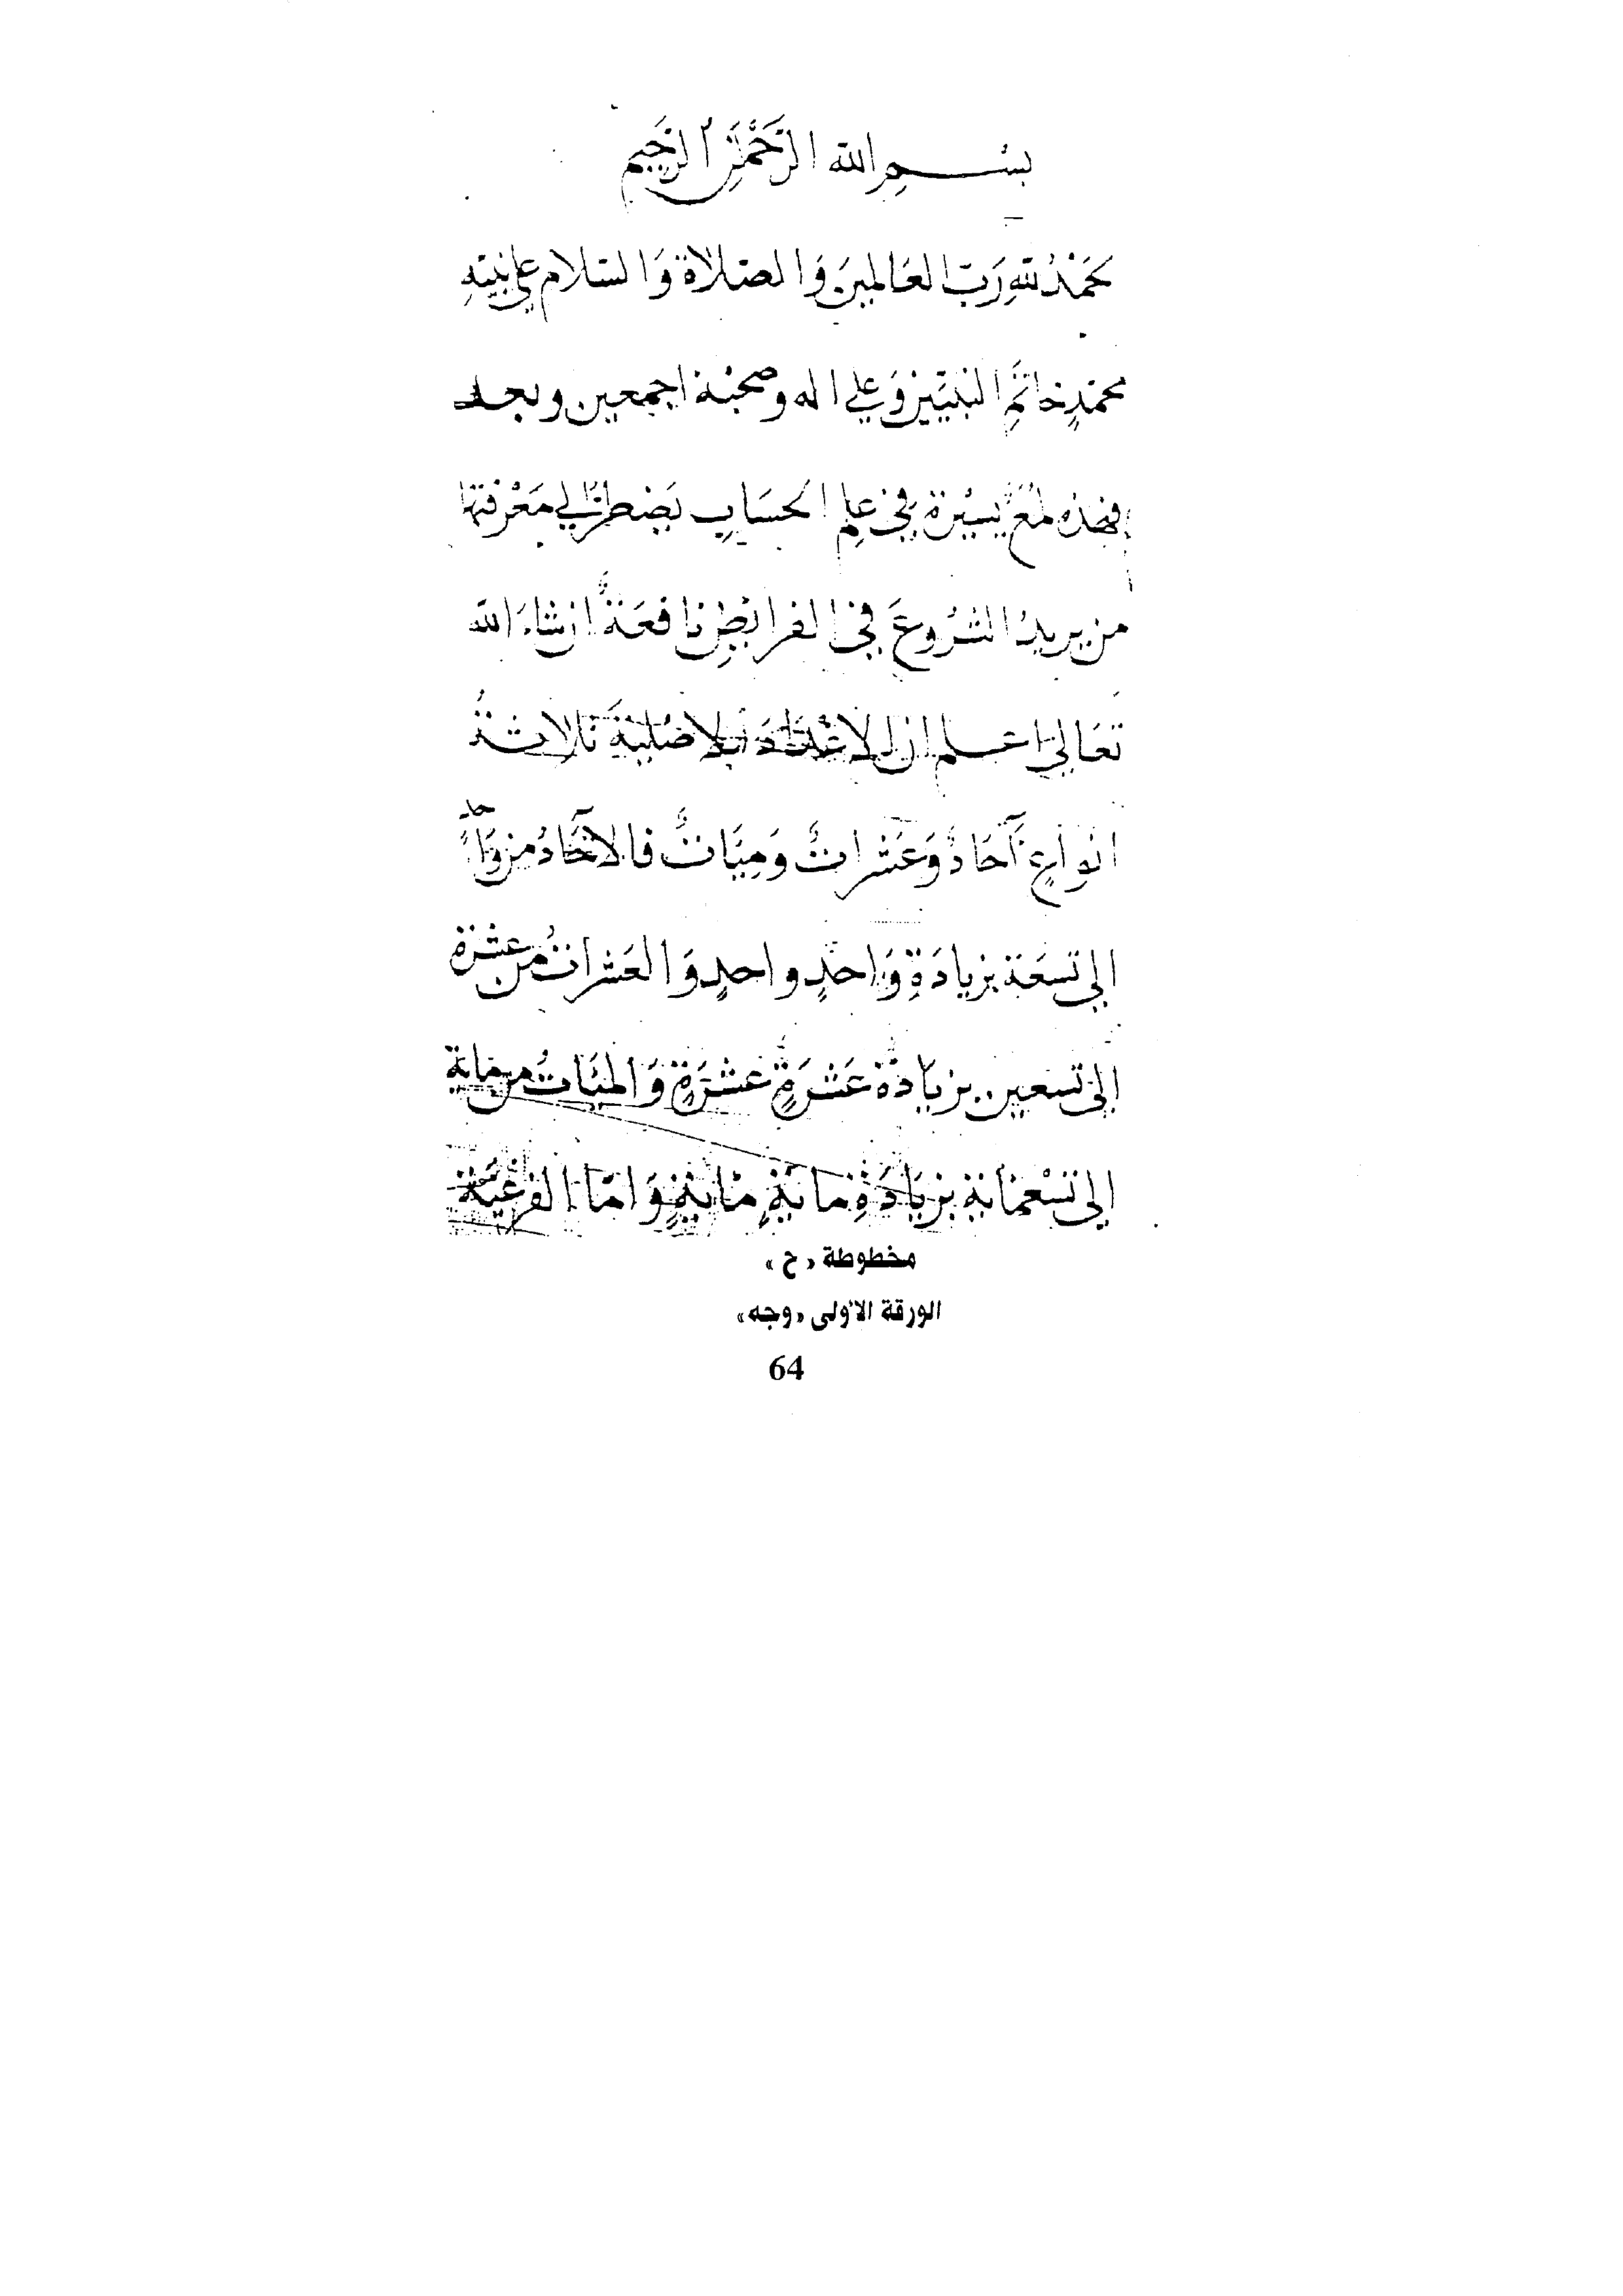 بِسْمِ الله الرَّحْمَنِ الرَّحِيمِ
حَمْدُ للهِ رَبِّ العَالمِينَ وَالصَلَاة وَالسَلام على نبيهِ
محمدٍ خاتَمِ النبيّين وَعلي اله وصحبه اجمعين وبعد
فهذه لمعٌ يسيْرة في علِم الحسَابِ يَضطرُّ الي مَعْرفتها
من يريدُ الشرُوعَ في الفرايضِ نافعَةٌ ان شاءَ الله
تعَالي اعلم ان الاعْدَادَ الاصْليةَ ثلاثةُ
انواعٍ آحَادٌ وَعَشراتٌ وَمِيَاتٌ فالآحَادُ من وَاحدٍ
الي تسعَة بزيادَةِ وَاحدٍ واحدٍ وَالعَشراتُ من عشرة
الي تسعين بزيَادَة عَشرَةٍ عشرَةٍ وَالميَاتُ من ماية
الي تسْعماية بزيَادَةِ مايةٍ مايةٍ وَامّا الفرْعيَّة
مخطوطة «ح»
الورقة الأولى «وجه»
64